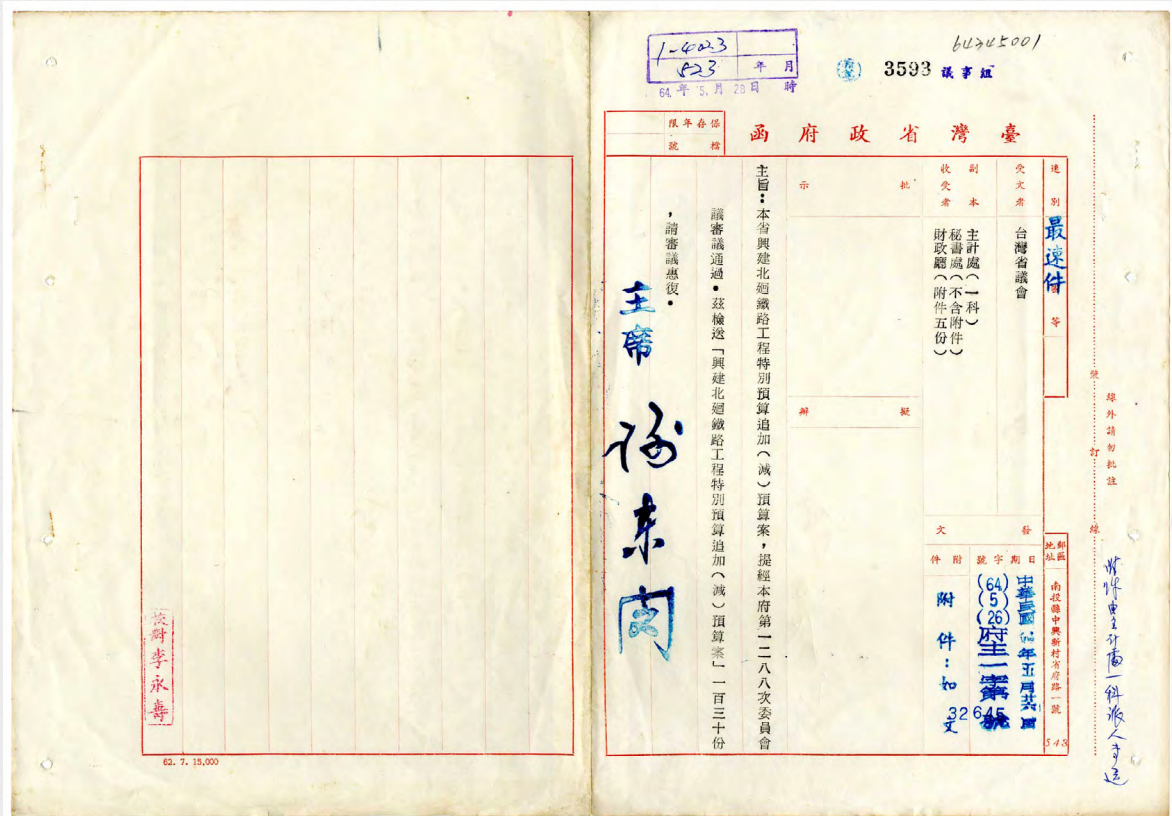 64245001
1-4023
523
年 月
64.年 5.月 28日 時
3593 議事組
臺灣省政府函
保存年限
檔號
速別
最速件
密等
受文者
台灣省議會
副本收受者
主計處(一科)
秘書處(不含附件)
財政廳(附件五份)
批示
擬辦
發文
日期
中華民國64年五月廿六日
字號
(64)(5)(26)府主一字第
32645
號
附件
附件:如文
郵區
地址
南投縣中興新村省府路一號
543
主旨:本省興建北廻鐵路工程特別預算追加(減)預算案,提經本府第一二八八次委員會
議審議通過。茲檢送「興建北廻鐵路工程特別預算追加(減)預算案」一百三十份
,請審議惠復。
主席 謝東閔
裝訂線
線外請勿批註
校對李永壽
62. 7. 15,000